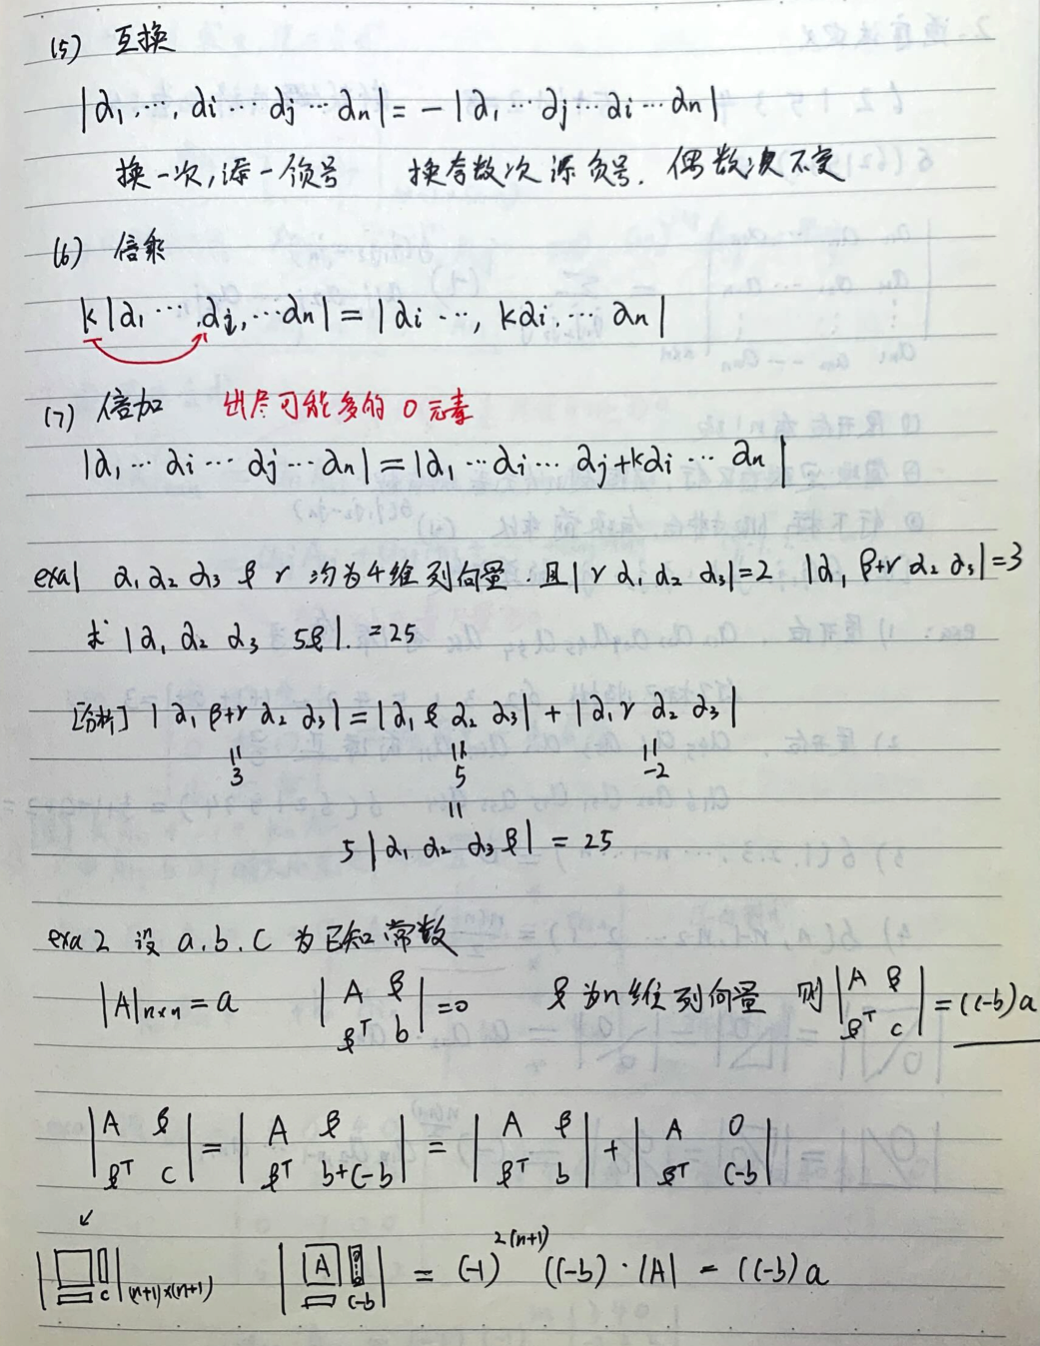 (5) 互换
|α₁, ⋯, αi ⋯ αj ⋯ αn| = - |α₁ ⋯ αj ⋯ αi ⋯ αn|
换一次,添一负号 换奇数次添负号. 偶数次不变
(6) 倍乘
k|α₁ ⋯ , αi, ⋯ αn| = |αi ⋯, kαi, ⋯ αn|
(7) 倍加 出尽可能多的 0 元素
|α₁ ⋯ αi ⋯ αj ⋯ αn| = |α₁ ⋯ αi ⋯ αj+kαi ⋯ αn|
exa1 α₁ α₂ α₃ β r 均为4维列向量. 且|r α₁ α₂ α₃|=2 |α₁ β+r α₂ α₃|=3
求 |α₁ α₂ α₃ 5β|. =25
[分析] |α₁ β+r α₂ α₃| = |α₁ β α₂ α₃| + |α₁ r α₂ α₃|
|| || ||
3 5 -2
||
5|α₁ α₂ α₃ β| = 25
exa2 设 a.b.c 为已知常数
|A|n×n = a |A β
βᵀ b|=0 β为n维列向量 则|A β
βᵀ c| = (c-b)a
|A β
βᵀ c| = |A β
βᵀ b+c-b| = |A β
βᵀ b| + |A 0
βᵀ c-b|
c |(n+1)×(n+1) |A c-b| = (-1)²⁽ⁿ⁺¹⁾ (c-b)·|A| = (c-b)a